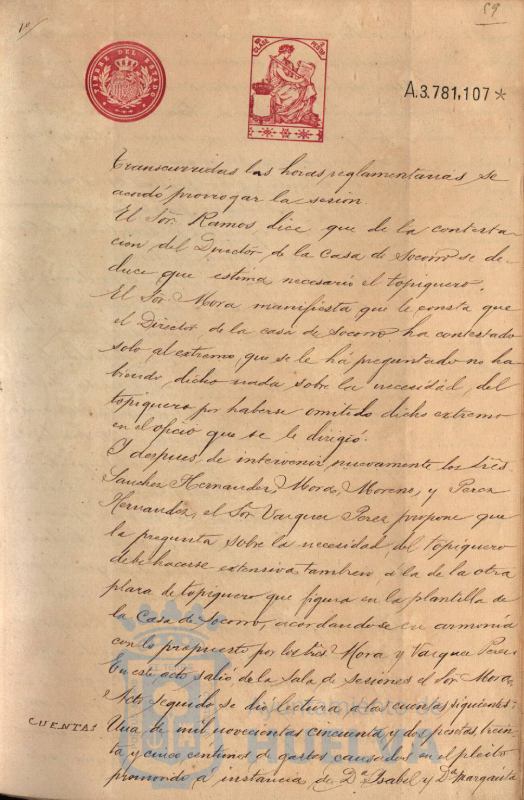 59
TIMBRE DEL ESTADO
A.3.781,107 *
Transcurridas las horas reglamentarias, se
acordó prorrogar la sesion.
El Sõr. Ramos, dice que de la contesta-
cion del Director de la Casa de Socorro se de-
duce que estima necesario el topiquero.
El Sõr. Mora manifiesta que le consta que
el Director de la casa de Socorro ha contestado
solo al extremo, que se le há preguntado no ha-
biendo, dicho nada sobre la necesidad del
topiquero por haberse omitido dicho extremo
en el oficio que se le dirigió.
Y despues de intervenir nuevamente los Sres.
Sanchez Hernandez, Mora, Moreno, y Perez
Hernandez, el Sõr Vazquez Perez propone que
la pregunta sobre la necesidad del topiquero
debe hacerse extensiva tambien, á la de la otra
plaza de topiquero que figura en la plantilla de
la Casa de Socorro, acordandose en armonia
con lo propuesto por los Sres. Mora y Vazquez Perez.
En este acto salió de la Sala de Sesiones el Sõr Mora.
Acto seguido se dió lectura á las cuentas siguientes:
CUENTAS
Una, de mil novecientas cincuenta y dos pesetas trein-
ta y cinco centimos de gastos causados en el pleito
promovido á instancia de Dª Isabel y Dª Margarita
HUELVA